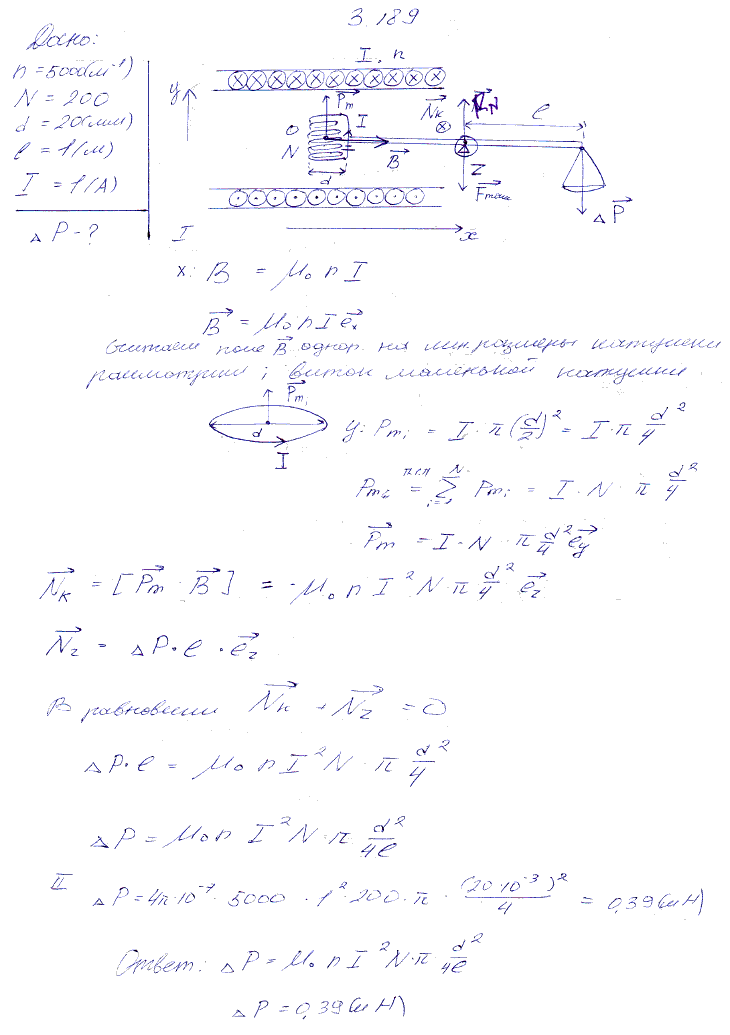 3.189
Дано:
n = 5000 (м⁻¹)
N = 200
d = 20 (мм)
l = 1 (м)
I = 1 (А)
ΔP - ?
I, n
y
P⃗m
I
O
N
d
B⃗
N⃗к
N⃗
l
Z
F⃗тяж
ΔP⃗
x
I
x: B = μ₀ n I
B⃗ = μ₀ n I e⃗x
Считаем поле B⃗ однор. на лин. размеры катушки
рассмотрим i виток маленькой катушки.
P⃗mi
d
I
y: Pmi = I · π (d/2)² = I · π d²/4
Pm = Σ Pmi = I · N · π d²/4
N
i=1
P⃗m = I · N · π d²/4 e⃗y
N⃗к = [P⃗m · B⃗] = -μ₀ n I² N π d²/4 e⃗z
N⃗z = ΔP · l · e⃗z
В равновесии N⃗к + N⃗z = 0
ΔP · l = μ₀ n I² N · π d²/4
ΔP = μ₀ n I² N · π d²/4l
II ΔP = 4π·10⁻⁷ · 5000 · 1² · 200 · π · (20·10⁻³)²/4 = 0,39 (мН)
Ответ: ΔP = μ₀ n I² N · π d²/4l
ΔP = 0,39 (мН)